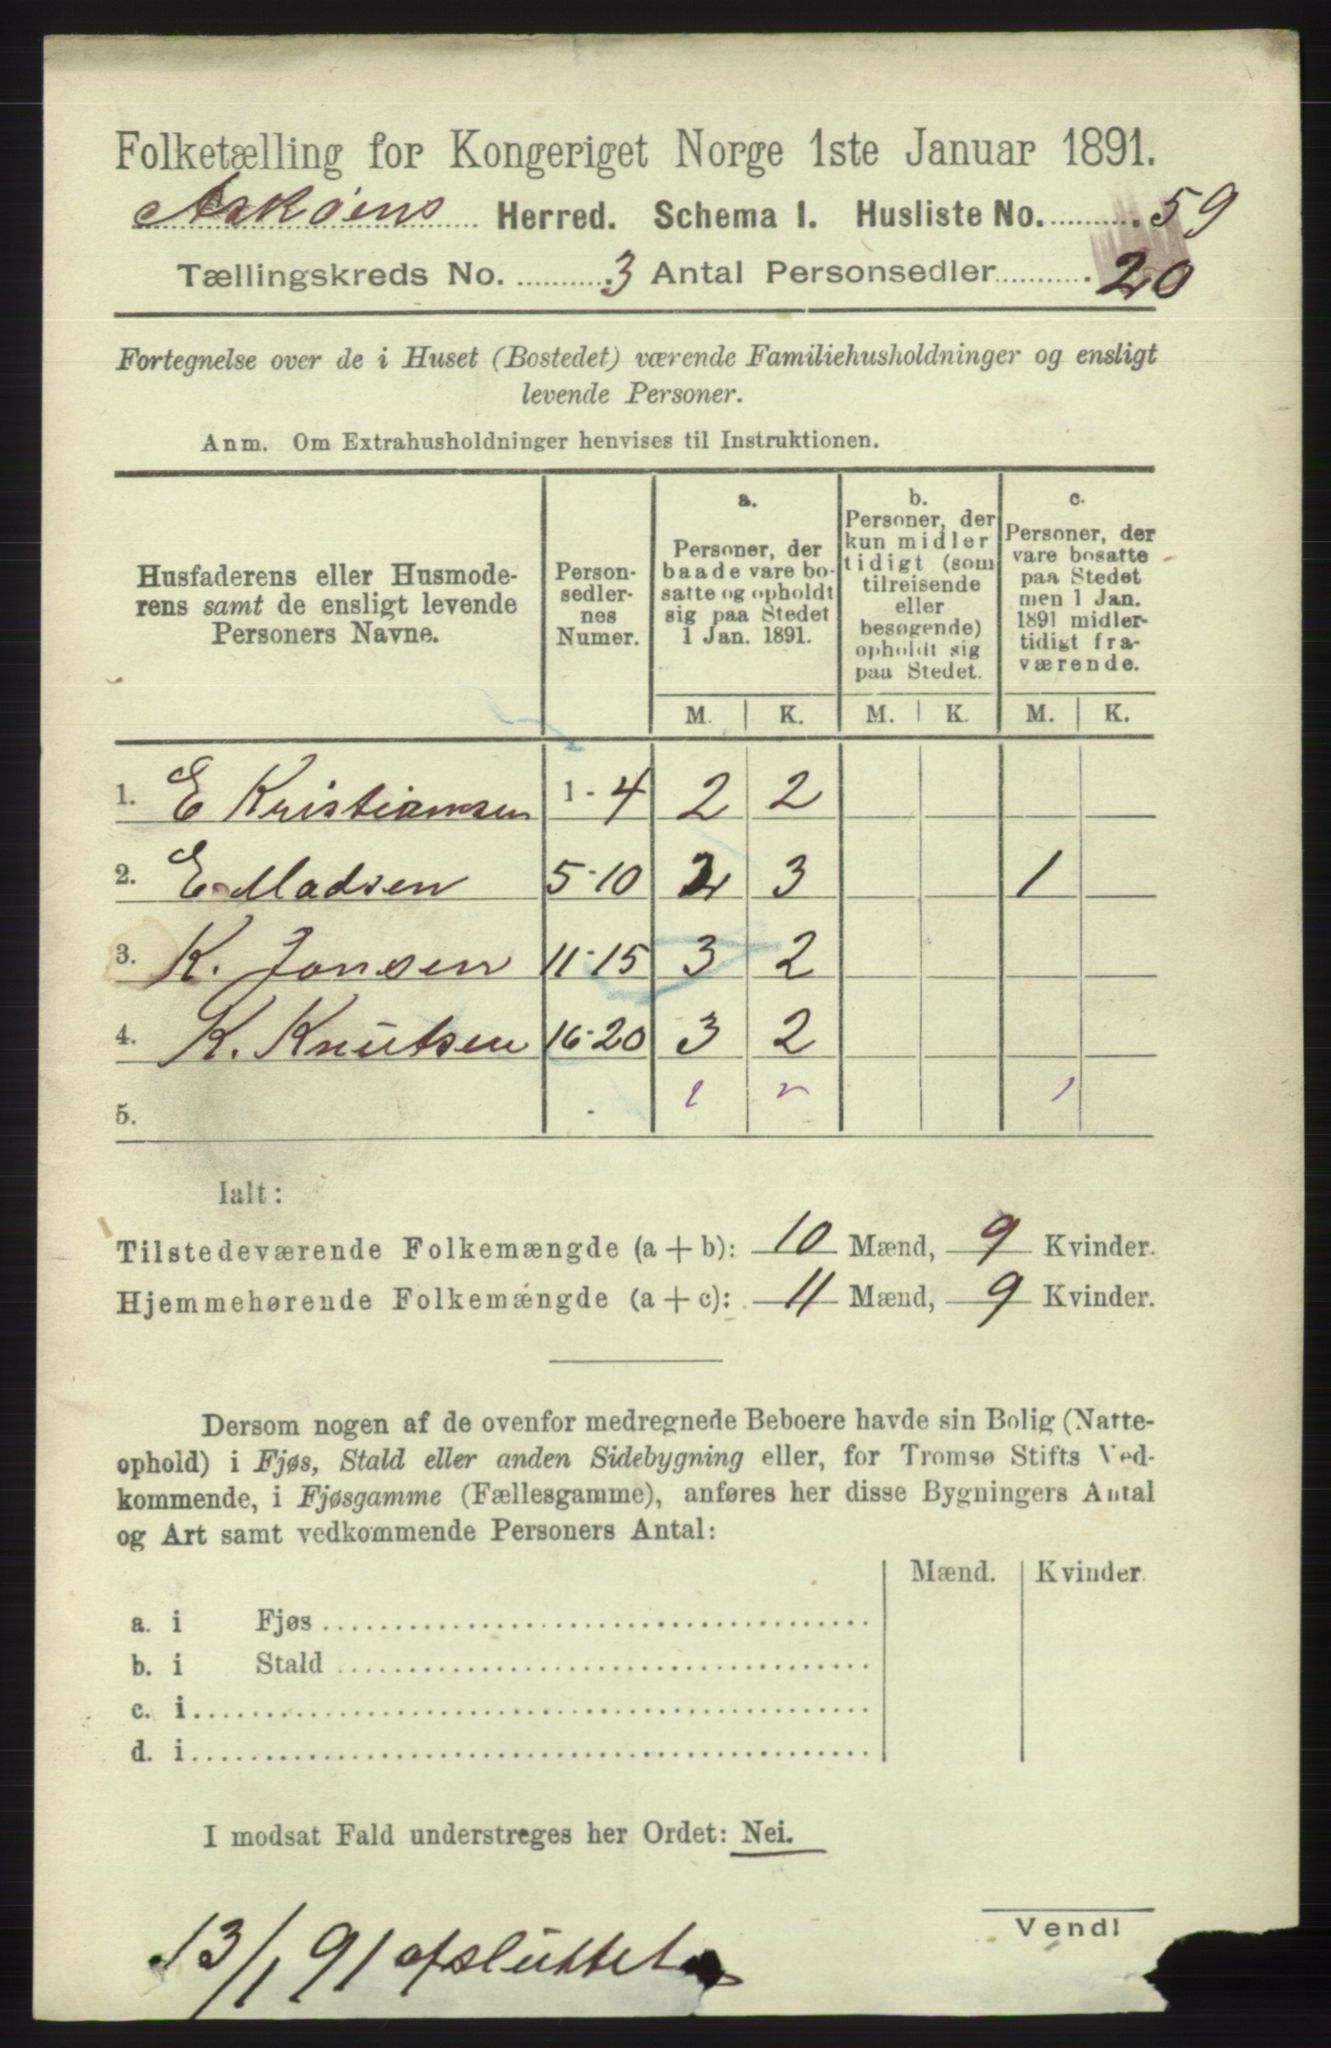 Folketælling for Kongeriget Norge 1ste Januar 1891.
Askøens Herred. Schema I. Husliste No. 59
Tællingskreds No. 3 Antal Personsedler 20
Fortegnelse over de i Huset (Bostedet) værende Familiehusholdninger og ensligt
levende Personer.
Anm. Om Extrahusholdninger henvises til Instruktionen.
Husfaderens eller Husmode-
rens samt de ensligt levende
Personers Navne.
Person-
sedler-
nes
Numer.
a.
Personer, der
baade vare bo-
satte og opholdt
sig paa Stedet
1 Jan. 1891.
b.
Personer, der
kun midler
tidigt (som
tilreisende
eller
besøgende)
opholdt sig
paa Stedet.
c.
Personer, der
vare bosatte
paa Stedet
men 1 Jan.
1891 midler-
tidigt fra-
værende.
M. K. M. K. M. K.
1. E Kristiansen 1-4 2 2
2. E Madsen 5-10 2 3 1
3. K. Jonsen 11-15 3 2
4. K. Knutsen 16-20 3 2
5.
Ialt:
Tilstedeværende Folkemængde (a + b): 10 Mænd, 9 Kvinder.
Hjemmehørende Folkemængde (a + c): 11 Mænd, 9 Kvinder.
Dersom nogen af de ovenfor medregnede Beboere havde sin Bolig (Natte-
ophold) i Fjøs, Stald eller anden Sidebygning eller, for Tromsø Stifts Ved-
kommende, i Fjøsgamme (Fællesgamme), anføres her disse Bygningers Antal
og Art samt vedkommende Personers Antal:
Mænd. Kvinder.
a. i Fjøs
b. i Stald
c. i
d. i
I modsat Fald understreges her Ordet: Nei.
13/1 91 afsluttet
Vend!